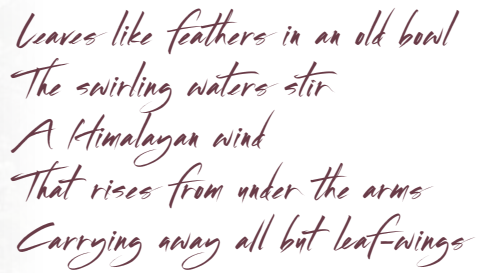 Leaves like feathers in an old bowl
The swirling waters stir
A Himalayan wind
That rises from under the arms
Carrying away all but leaf-wings